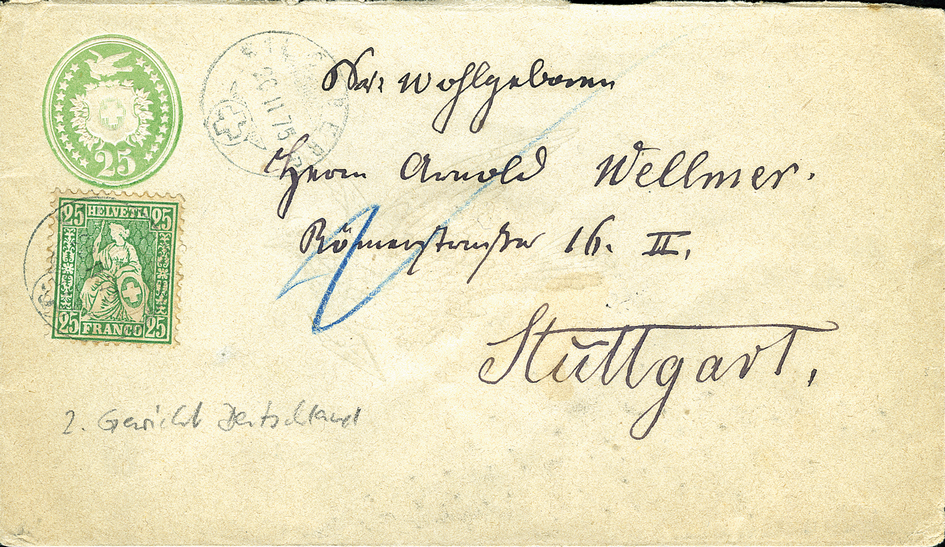 25
26 II 75
Sr. Wohlgeboren
Herrn Arnold Wellmer.
Römerstrasse 16. II.
Stuttgart.
25 HELVETIA 25
25 FRANCO 25
2. Gewicht Deutschland